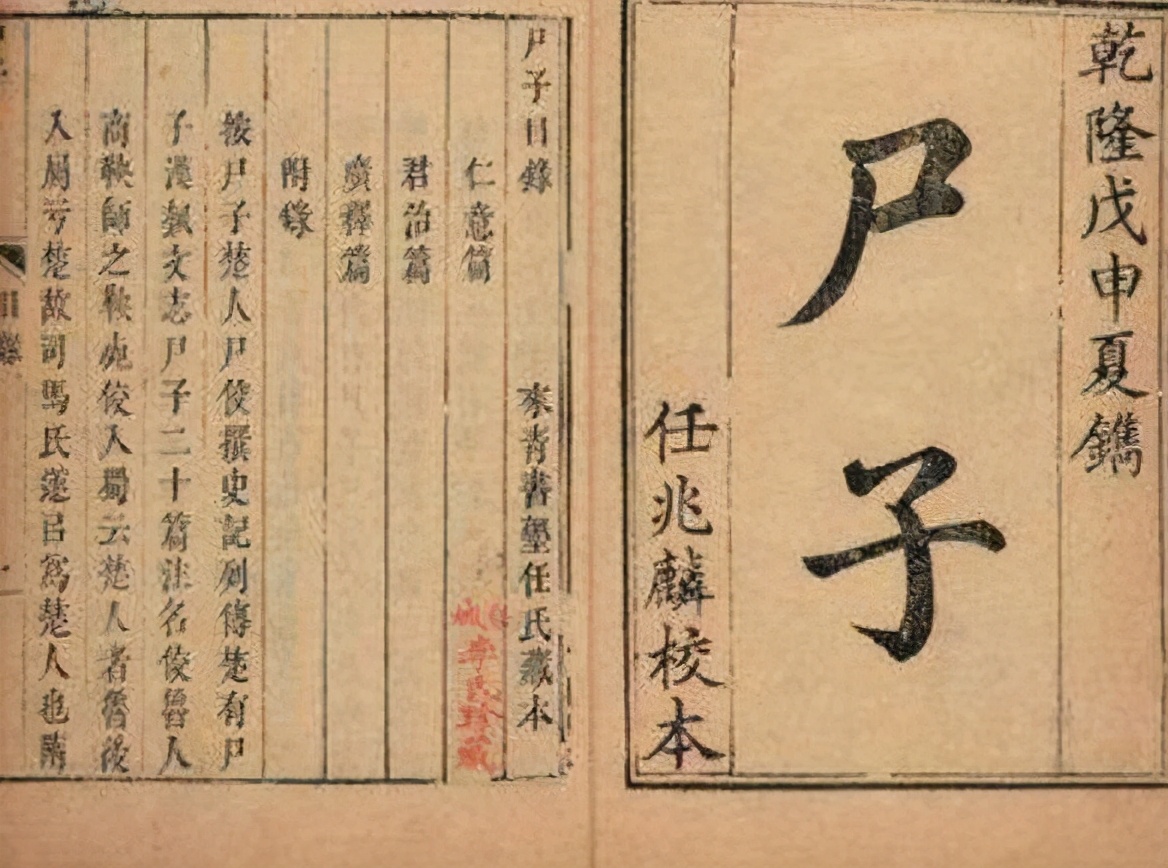 乾隆戊申夏鐫
尸子
任兆麟校本
尸子目錄 來青書塾任氏藏本
仁意篇
君治篇
廣釋篇
附錄
按尸子楚人尸佼撰史記列傳楚有尸
子漢藝文志尸子二十篇注名佼魯人
商鞅師之鞅死佼入蜀云楚人者魯後
入屬於楚故司馬氏遂㠯爲楚人也隋